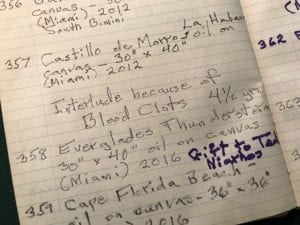 356
canvas -
(Miami) - 2012
South Bimini
357 Castillo de Morro, La Habana
canvas - 30" x 40" oil on
(Miami) - 2012
Interlude because of
Blood Clots 4½ yrs.
358 Everglades Thunderstorm
30" x 40" oil on canvas
(Miami) 2016 Gift to Ted
Niarhos
359 Cape Florida Beach -
oil on canvas - 36" x 36"
2016
362